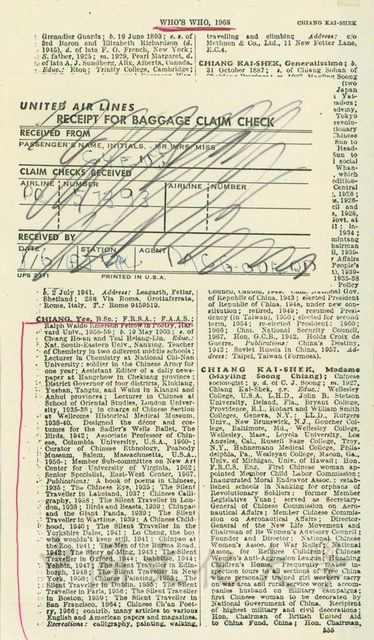 WHO'S WHO, 1968
CHIANG KAI-SHEK
Grenadier Guards; b. 19 June 1893; e. s. of
3rd Baron and Elizabeth Richardson (d.
1945), d. of late F. O. French, New York;
S. father, 1925; m. 1929, Pearl Margaret, d.
of late A. J. Sundberg, Alix, Alberta, Canada.
Educ.: Eton; Trinity College, Cambridge;
travelling and climbing. Address: c/o
Methuen & Co., Ltd., 11 New Fetter Lane,
E.C.4.
CHIANG KAI-SHEK, Generalissimo; b.
31 October 1887; s. of Chiang Sohan of
UNITED AIR LINES
RECEIPT FOR BAGGAGE CLAIM CHECK
RECEIVED FROM
PASSENGER'S NAME, INITIALS, MR. MRS. MISS
CLAIM CHECKS RECEIVED
AIRLINE NUMBER AIRLINE NUMBER
RECEIVED BY
DATE STATION AGENT
PRINTED IN U.S.A.
b. 2 July 1941. Address: Leagarth, Fetlar,
Shetland; 28A Via Roma, Grottaferrata,
Rome, Italy. T.: Rome 9459519.
CHIANG, Yee, B.Sc.; F.R.S.A.; F.A.A.S.;
Ralph Waldo Emerson Fellow in Poetry, Har-
vard Univ., 1958-59; b. 19 May 1903; s. of
Chiang Ho-an and Tsai Hsiang-Lin. Educ.:
Nat. South-Eastern Univ., Nanking. Teacher
of Chemistry in two different middle schools;
Lecturer in Chemistry at National Chi-Nan
University; soldier in the Chinese army for
one year; Assistant Editor of a daily news-
paper at Hangchow in Chekiang province;
District Governor of four districts, Kiukiang,
Yushan, Tangtu, and Wuhu in Kiangsi and
Anhui provinces; Lecturer in Chinese at
School of Oriental Studies, London Univer-
sity, 1935-38; in charge of Chinese Section
at Wellcome Historical Medical Museum,
1938-40. Designed the décor and cos-
tumes for the Sadler's Wells Ballet, The
Birds, 1942; Associate Professor of Chin-
ese, Columbia University, U.S.A., 1960-;
Curator of Chinese Ethnology, Peabody
Museum, Salem, Massachusetts, U.S.A.,
1956-; Member Bd, Humanities
Center for University of Virginia, 1962;
Senior Specialist, East-West Center, 1967.
Publications: A book of poems in Chinese,
1935; The Chinese Eye, 1935; The Silent
Traveller in Lakeland, 1937; Chinese Calli-
graphy, 1938; The Silent Traveller in Lon-
don, 1938; Birds and Beasts, 1939; Chinpao
and the Giant Panda, 1939; The Silent
Traveller in Wartime, 1939; A Chinese Child-
hood, 1940; The Silent Traveller in the
Yorkshire Dales, 1941; Lo Cheng, the boy
who wouldn't keep still, 1941; Chinpao at
the Zoo, 1941; The Men of the Burma Road,
1942; The Story of Ming, 1943; The Silent
Traveller in Oxford, 1944; Dabbitse, 1944;
Yebbin, 1947; The Silent Traveller in Edin-
burgh, 1948; The Silent Traveller in New
York, 1950; Chinese Painting, 1953; The
Silent Traveller in Dublin, 1953; The Silent
Traveller in Paris, 1956; The Silent Traveller
in Boston, 1959; The Silent Traveller in
San Francisco, 1964; Chinese Ch'an Poet-
ry, 1966; contrib. many articles to various
English and American papers and magazines.
Recreations: calligraphy, painting, walking,
of Republic of China, 1943; elected President
of Republic of China, 1948, under new con-
stitution; retired, 1949; resumed Presi-
dency (in Taiwan), 1950; elected for second
term, 1954; re-elected President: 1960;
1966; Chm. National Security Council,
1967. Hon. G.C.B., 1942; Holds Croix de
Guerre. Publications: China's Destiny,
1943; Soviet Russia in China, 1957. Ad-
dress: Taipei, Taiwan (Formosa).
CHIANG KAI-SHEK, Madame
(Mayling Soong Chiang); Chinese
sociologist; y. d. of C. J. Soong; m. 1927,
Chiang Kai-Shek, q.v. Educ.: Wellesley
College, U.S.A. L.H.D., John B. Stetson
University, Deland, Fla., Bryant College,
Providence, R.I., Hobart and William Smith
Colleges, Geneva, N.Y.; LL.D., Rutgers
Univ., New Brunswick, N.J., Goucher Col-
lege, Baltimore, Md., Wellesley College,
Wellesley, Mass., Loyola University, Los
Angeles, Cal., Russell Sage College, Troy,
N.Y., Hahnemann Medical College, Phila-
delphia, Pa., Wesleyan College, Macon, Ga.,
Univ. of Michigan, Univ. of Hawaii; Hon.
F.R.C.S. Eng. First Chinese woman ap-
pointed Member Child Labor Commission;
Inaugurated Moral Endeavor Assoc.; estab-
lished schools in Nanking for orphans of
Revolutionary Soldiers; former Member
Legislative Yuan; served as Secretary-
General of Chinese Commission on Aero-
nautical Affairs; Member Chinese Commis-
sion on Aeronautical Affairs; Director-
General of the New Life Movement and
Chairman of its Women's Advisory Council;
Founder and Director: National Chinese
Women's Assoc. for War Relief; National
Assoc. for Refugee Children; Chinese
Women's Anti-Aggression League; Huashing
Children's Homes. Frequently makes in-
spection tours to all sections of Free China
where personally trained girl workers carry
on war area and rural service work; accom-
panies husband on military campaigns;
first Chinese woman to be decorated by
National Government of China. Recipient
of highest military and civil decorations;
Hon. Chairman, British United Aid
to China Fund, China; Hon. Chairman,
555